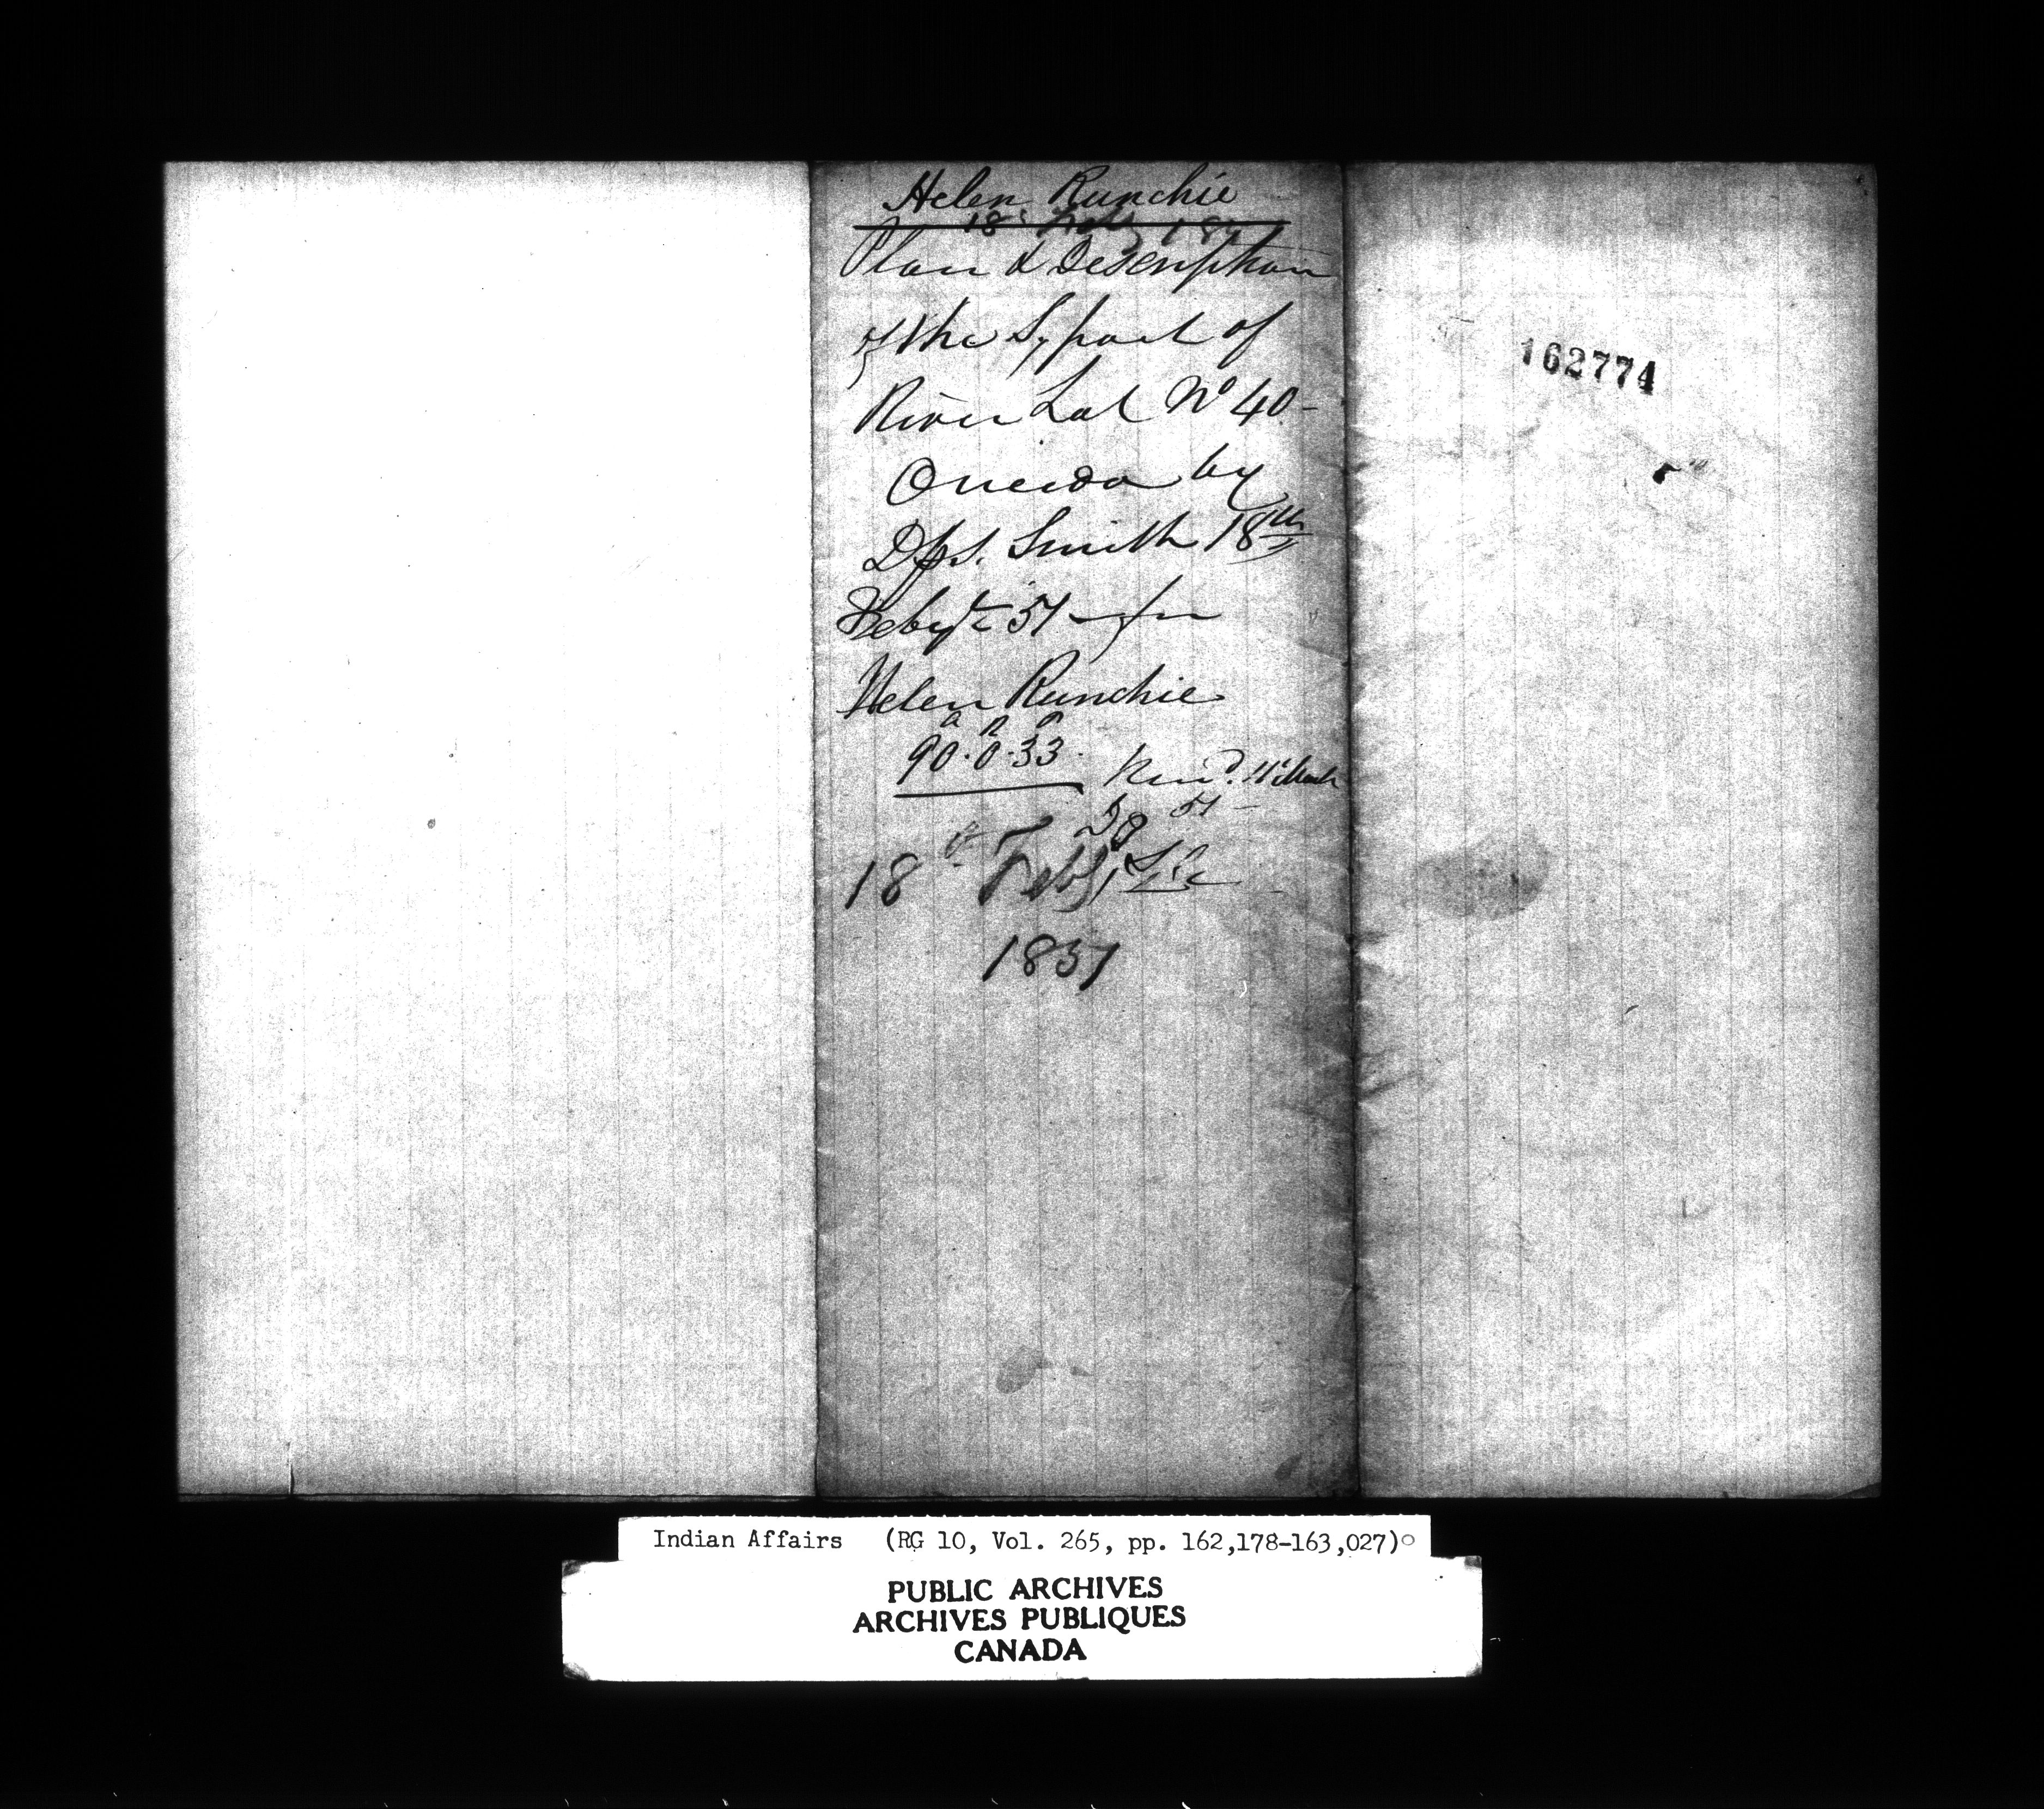 Helen Runchie
18
Plan & Description
of the Sy part of
River Lot No 40-
Oneida by
D.P.S. Smith 18th
Feby 51 for
Helen Runchie
a r p
90.0.33.
51
18 Feby
1851
162774
Indian Affairs (RG 10, Vol. 265, pp. 162,178-163,027)
PUBLIC ARCHIVES
ARCHIVES PUBLIQUES
CANADA